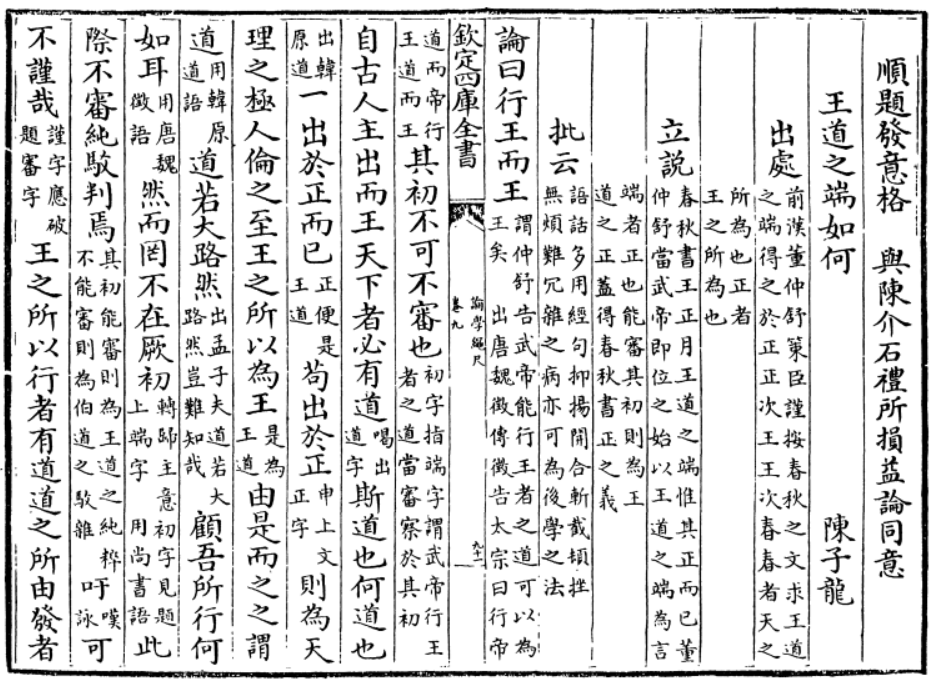 順題發意格　與陳介石禮所損益論同意
王道之端如何　陳子龍
出處　前漢董仲舒策臣謹按春秋之文求王道
之端得之於正正次王王次春春者天之
所為也正者
王之所為也
立説　春秋書王正月王道之端惟其正而已董
仲舒當武帝即位之始以王道之端為言
端者正也能審其初則為王
道之正蓋得春秋書正之義
批云　語話多用經句抑揚開合斬截頓挫
無煩難冗雜之病亦可為後學之法
論曰行王而王　謂仲舒告武帝能行王者之道可以為王矣　出唐魏徵傳徵告太宗曰行帝
欽定四庫全書　論學繩尺　卷九　九十一
道而帝行王道而王　其初不可不審也　初字指端字謂武帝行王者之道當審察於其初
自古人主出而王天下者必有道　喝出道字　斯道也何道也
出韓原道　一出於正而已　正便是王道　苟出於正　申上文正字　則為天
理之極人倫之至王之所以為王　是為王道　由是而之之謂
道　用韓原道語　道若大路然　出孟子夫道若大路然豈難知哉　顧吾所行何
如耳　用唐魏徵語　然而罔不在厥初　轉歸主意初字見題上端字　用尚書語　此
際不審純駁判焉　其初能審則為王道之純粹不能審則為伯道之駁雜　吁　嘆詠　可
不謹哉　謹字應破題審字　王之所以行者有道道之所由發者